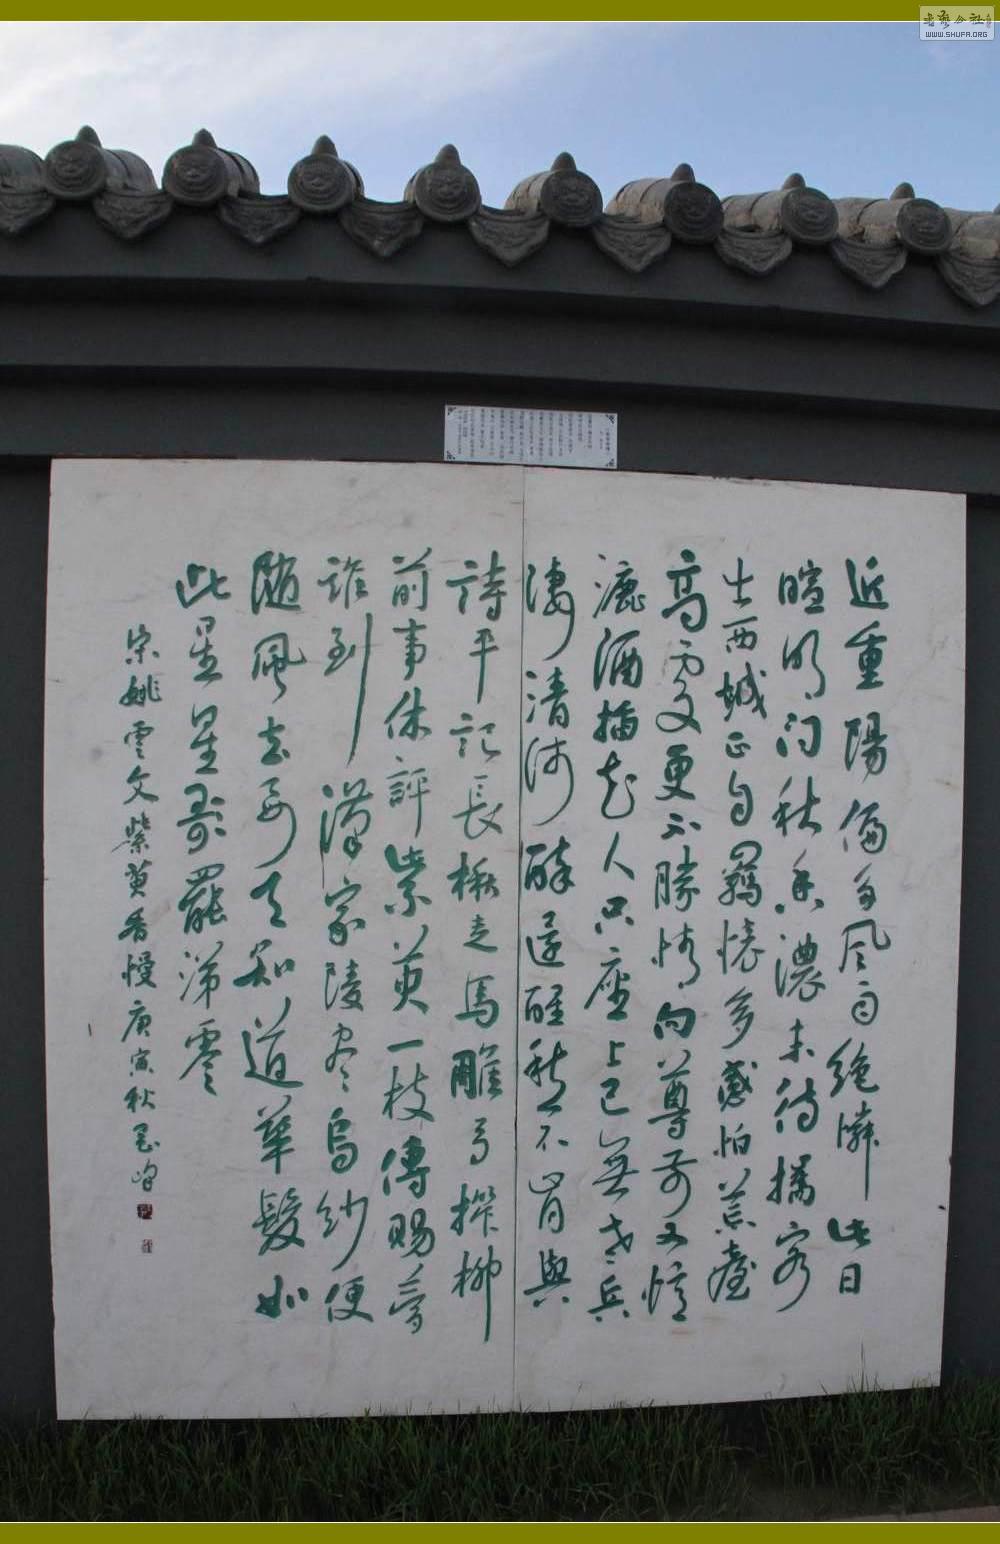 近重陽偏多风雨絶憐此日
暄明问秋香濃未待攜客
出西城正自羈懷多感怕荒臺
高處更不勝情向尊前又憶
漉酒插花人只座上已無老兵
淒清淺醉還醒愁不肯與
詩平記長楸走馬雕弓搾柳
前事休評紫萸一枝傳賜夢
誰到漢家陵盡烏紗便
隨風去要天知道華髮如
此星星歌罷涕零
宋姚雲文紫萸香慢庚寅秋
WWW.SHUFA.ORG